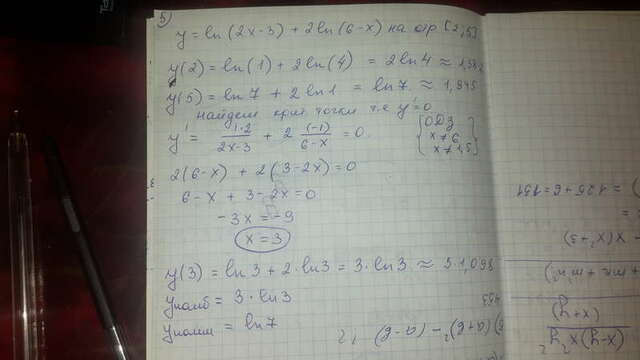 5)
y = ln(2x-3) + 2ln(6-x) на отр [2;5]
y(2) = ln(1) + 2ln(4) = 2ln4 ≈
y(5) = ln7 + 2ln1 = ln7 ≈ 1,945
найдем крит точки т.е y'=0
y' = 1·2/(2x-3) + 2 (-1)/(6-x) = 0
{ ОДЗ
x≠6
x≠1,5 }
2(6-x) + 2(3-2x)=0
6-x + 3-2x=0
-3x = -9
x=3
y(3) = ln3 + 2·ln3 = 3·ln3 ≈ 3 1,098
yнаиб = 3·ln3
yнаим = ln7
) = 125+6=131
=
- x(x²+5)
(x+y)